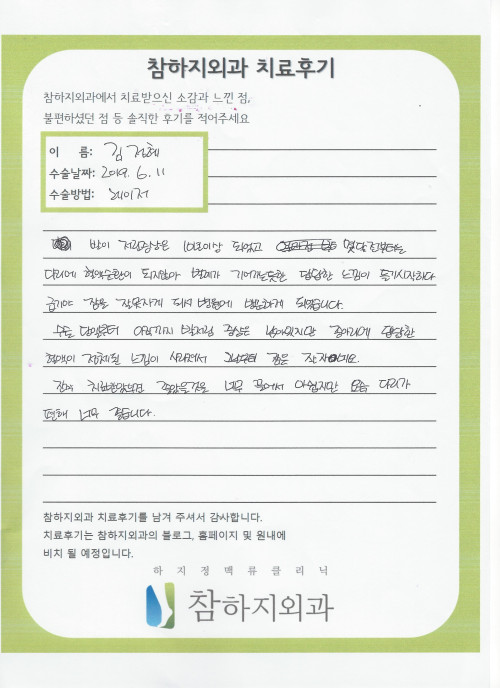 참하지외과 치료후기
참하지외과에서 치료받으신 소감과 느낀 점,
불편하셨던 점 등 솔직한 후기를 적어주세요
이 름: 김정혜
수술날짜: 2019. 6. 11
수술방법: 레이저
발이 저린증상은 10년이상 되었고 몇달전부터는
다리에 혈액순환이 되지않아 벌레가 기어가는듯한 답답한 느낌이 들기시작하다
급기야 잠을 잘못자게 되서 병원에 방문하게 되었습니다.
수술 당일부터 아직까지 발저림 증상은 남아있지만 종아리에 답답한
혈액이 정체된 느낌이 사라져서 그날부터 잠은 잘자네요.
진작 치료받았으면 좋았을것을 너무 끌어서 아쉽지만 요즘 다리가
편해 너무 좋습니다.
참하지외과 치료후기를 남겨 주셔서 감사합니다.
치료후기는 참하지외과의 블로그, 홈페이지 및 원내에
비치 될 예정입니다.
하지정맥류클리닉
참하지외과